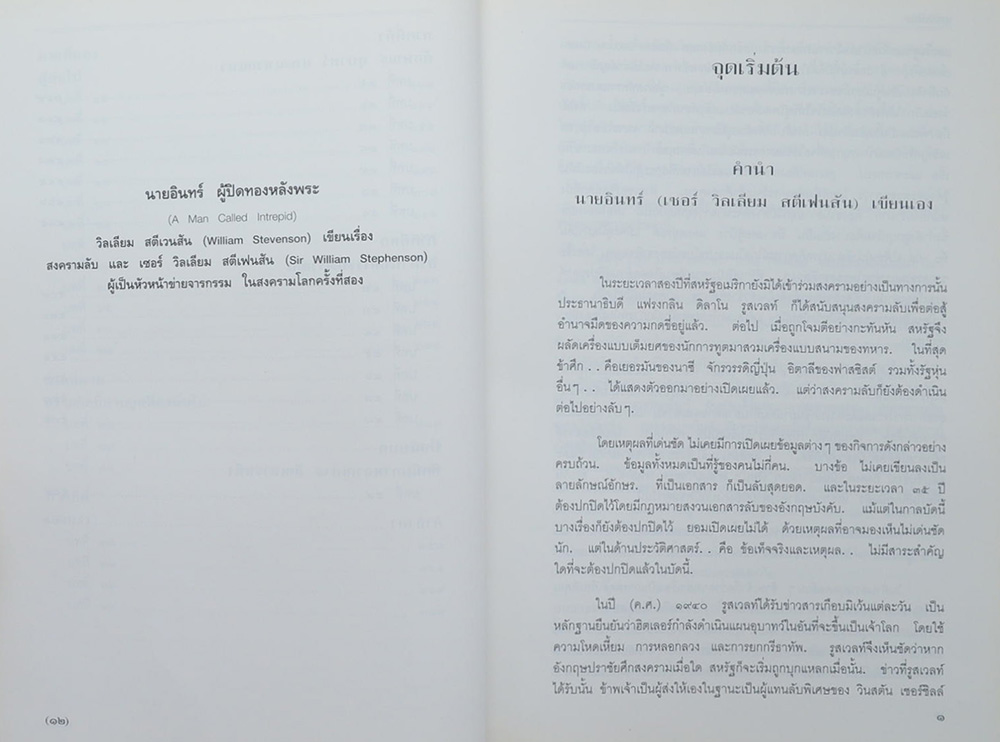 นายอินทร์ ผู้ปิดทองหลังพระ
(A Man Called Intrepid)
วิลเลียม สตีเวนสัน (William Stevenson) เขียนเรื่อง
สงครามลับ และ เซอร์ วิลเลียม สตีเฟนสัน (Sir William Stephenson)
ผู้เป็นหัวหน้าข่ายจารกรรม ในสงครามโลกครั้งที่สอง
(๑๒)
จุดเริ่มต้น
คำนำ
นายอินทร์ (เซอร์ วิลเลียม สตีเฟนสัน) เขียนเอง
ในระยะเวลาสองปีที่สหรัฐอเมริกายังมิได้เข้าร่วมสงครามอย่างเป็นทางการนั้น
ประธานาธิบดี แฟรงกลิน ดิลาโน รูสเวลท์ ก็ได้สนับสนุนสงครามลับเพื่อต่อสู้
อำนาจมืดของความกดขี่อยู่แล้ว. ต่อไป เมื่อถูกโจมตีอย่างกะทันหัน สหรัฐจึง
ผลัดเครื่องแบบเต็มยศของนักการทูตมาสวมเครื่องแบบสนามของทหาร. ในที่สุด
ข้าศึก . . คือเยอรมันของนาซี จักรวรรดิญี่ปุ่น อิตาลีของฟาสซิสต์ รวมทั้งรัฐหุ่น
อื่นๆ . . ได้แสดงตัวออกมาอย่างเปิดเผยแล้ว. แต่ว่าสงครามลับก็ยังต้องดำเนิน
ต่อไปอย่างลับๆ.
โดยเหตุผลที่เด่นชัด ไม่เคยมีการเปิดเผยข้อมูลต่างๆ ของกิจการดังกล่าวอย่าง
ครบถ้วน. ข้อมูลทั้งหมดเป็นที่รู้ของคนไม่กี่คน. บางข้อ ไม่เคยเขียนลงเป็น
ลายลักษณ์อักษร. ที่เป็นเอกสาร ก็เป็นลับสุดยอด. และในระยะเวลา ๓๕ ปี
ต้องปกปิดไว้โดยมีกฎหมายสงวนเอกสารลับของอังกฤษบังคับ. แม้แต่ในกาลบัดนี้
บางเรื่องก็ยังต้องปกปิดไว้ ยอมเปิดเผยไม่ได้ ด้วยเหตุผลที่อาจมองเห็นไม่เด่นชัด
นัก. แต่ในด้านประวัติศาสตร์ . . คือ ข้อเท็จจริงและเหตุผล . . ไม่มีสาระสำคัญ
ใดที่จะต้องปกปิดแล้วในบัดนี้.
ในปี (ค.ศ.) ๑๙๔๐ รูสเวลท์ได้รับข่าวสารเกือบมิเว้นแต่ละวัน เป็น
หลักฐานยืนยันว่าฮิตเลอร์กำลังดำเนินแผนอุบาทว์ในอันที่จะขึ้นเป็นเจ้าโลก โดยใช้
ความโหดเหี้ยม การหลอกลวง และการยกกรีธาทัพ. รูสเวลท์จึงเห็นชัดว่าหาก
อังกฤษปราชัยศึกสงครามเมื่อใด สหรัฐก็จะเริ่มถูกบุกแหลกเมื่อนั้น. ข่าวที่รูสเวลท์
ได้รับนั้น ข้าพเจ้าเป็นผู้ส่งให้เองในฐานะเป็นผู้แทนลับพิเศษของ วินสตัน เชอร์ชิลล์
๑